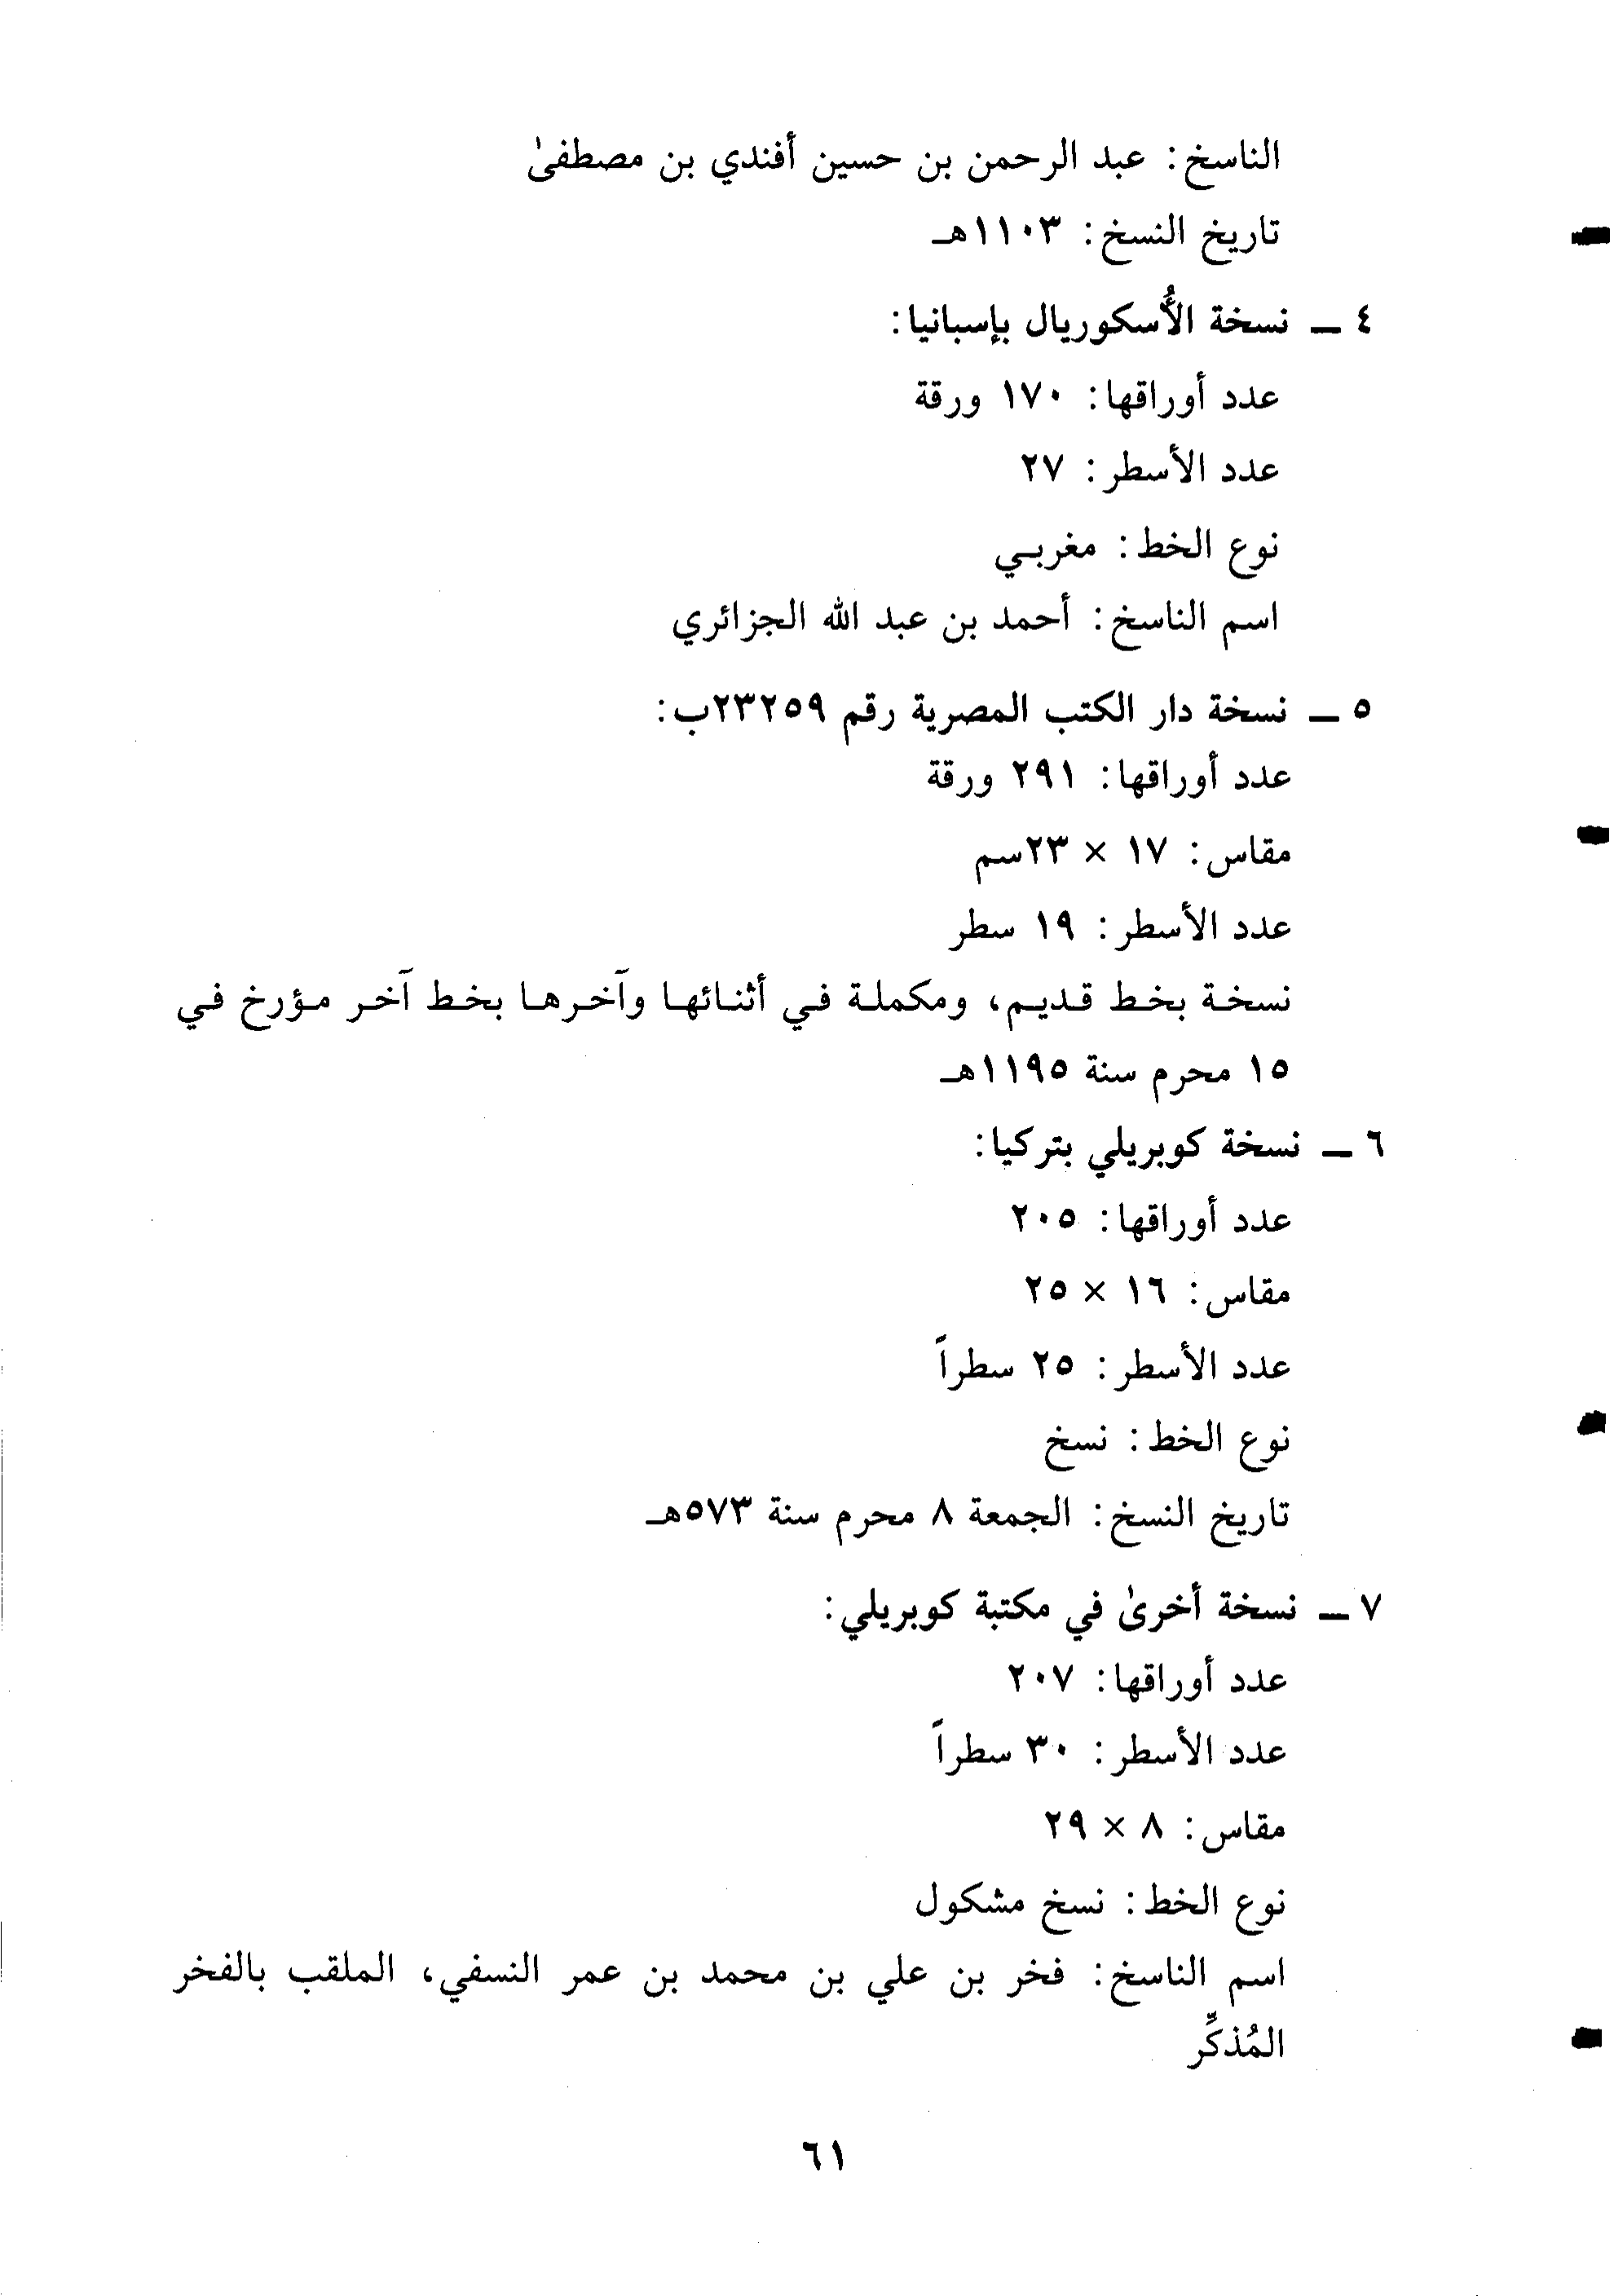 الناسخ: عبد الرحمن بن حسين أفندي بن مصطفىٰ
تاريخ النسخ: ١١٠٣هـ
٤ ــ نسخة الأُسكوريال بإسبانيا:
عدد أوراقها: ١٧٠ ورقة
عدد الأسطر: ٢٧
نوع الخط: مغربي
اسم الناسخ: أحمد بن عبد الله الجزائري
٥ ــ نسخة دار الكتب المصرية رقم ٢٣٢٥٩ب:
عدد أوراقها: ٢٩١ ورقة
مقاس: ١٧ × ٢٣سم
عدد الأسطر: ١٩ سطر
نسخة بخط قديم، ومكملة في أثنائها وآخرها بخط آخر مؤرخ في
١٥ محرم سنة ١١٩٥هـ
٦ ــ نسخة كوبريلي بتركيا:
عدد أوراقها: ٢٠٥
مقاس: ١٦ × ٢٥
عدد الأسطر: ٢٥ سطراً
نوع الخط: نسخ
تاريخ النسخ: الجمعة ٨ محرم سنة ٥٧٣هـ
٧ ــ نسخة أخرىٰ في مكتبة كوبريلي:
عدد أوراقها: ٢٠٧
عدد الأسطر: ٣٠ سطراً
مقاس: ٨ × ٢٩
نوع الخط: نسخ مشكول
اسم الناسخ: فخر بن علي بن محمد بن عمر النسفي، الملقب بالفخر
المُذكِّر
٦١